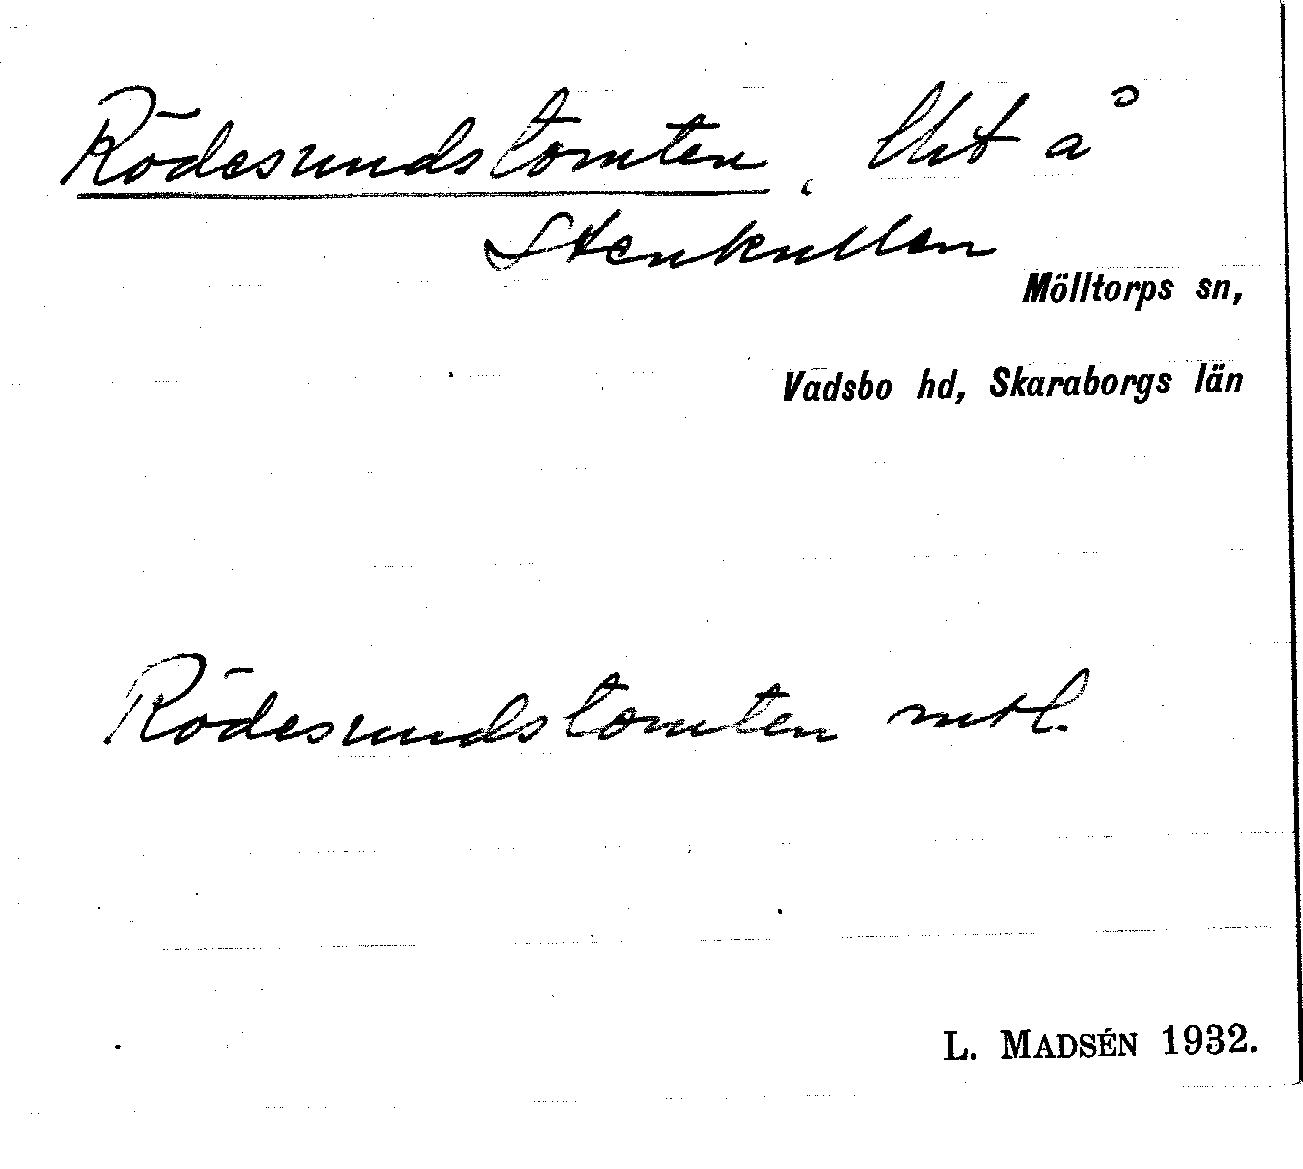 Rödesundstomten, lht å
Stenkullen
Mölltorps sn,
Vadsbo hd, Skaraborgs län
Rödesundstomten mtl.
L. MADSÉN 1932.